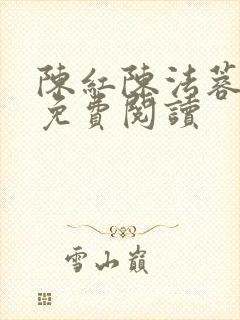 陳紅陳法蓉
免費閱讀
雪山巔